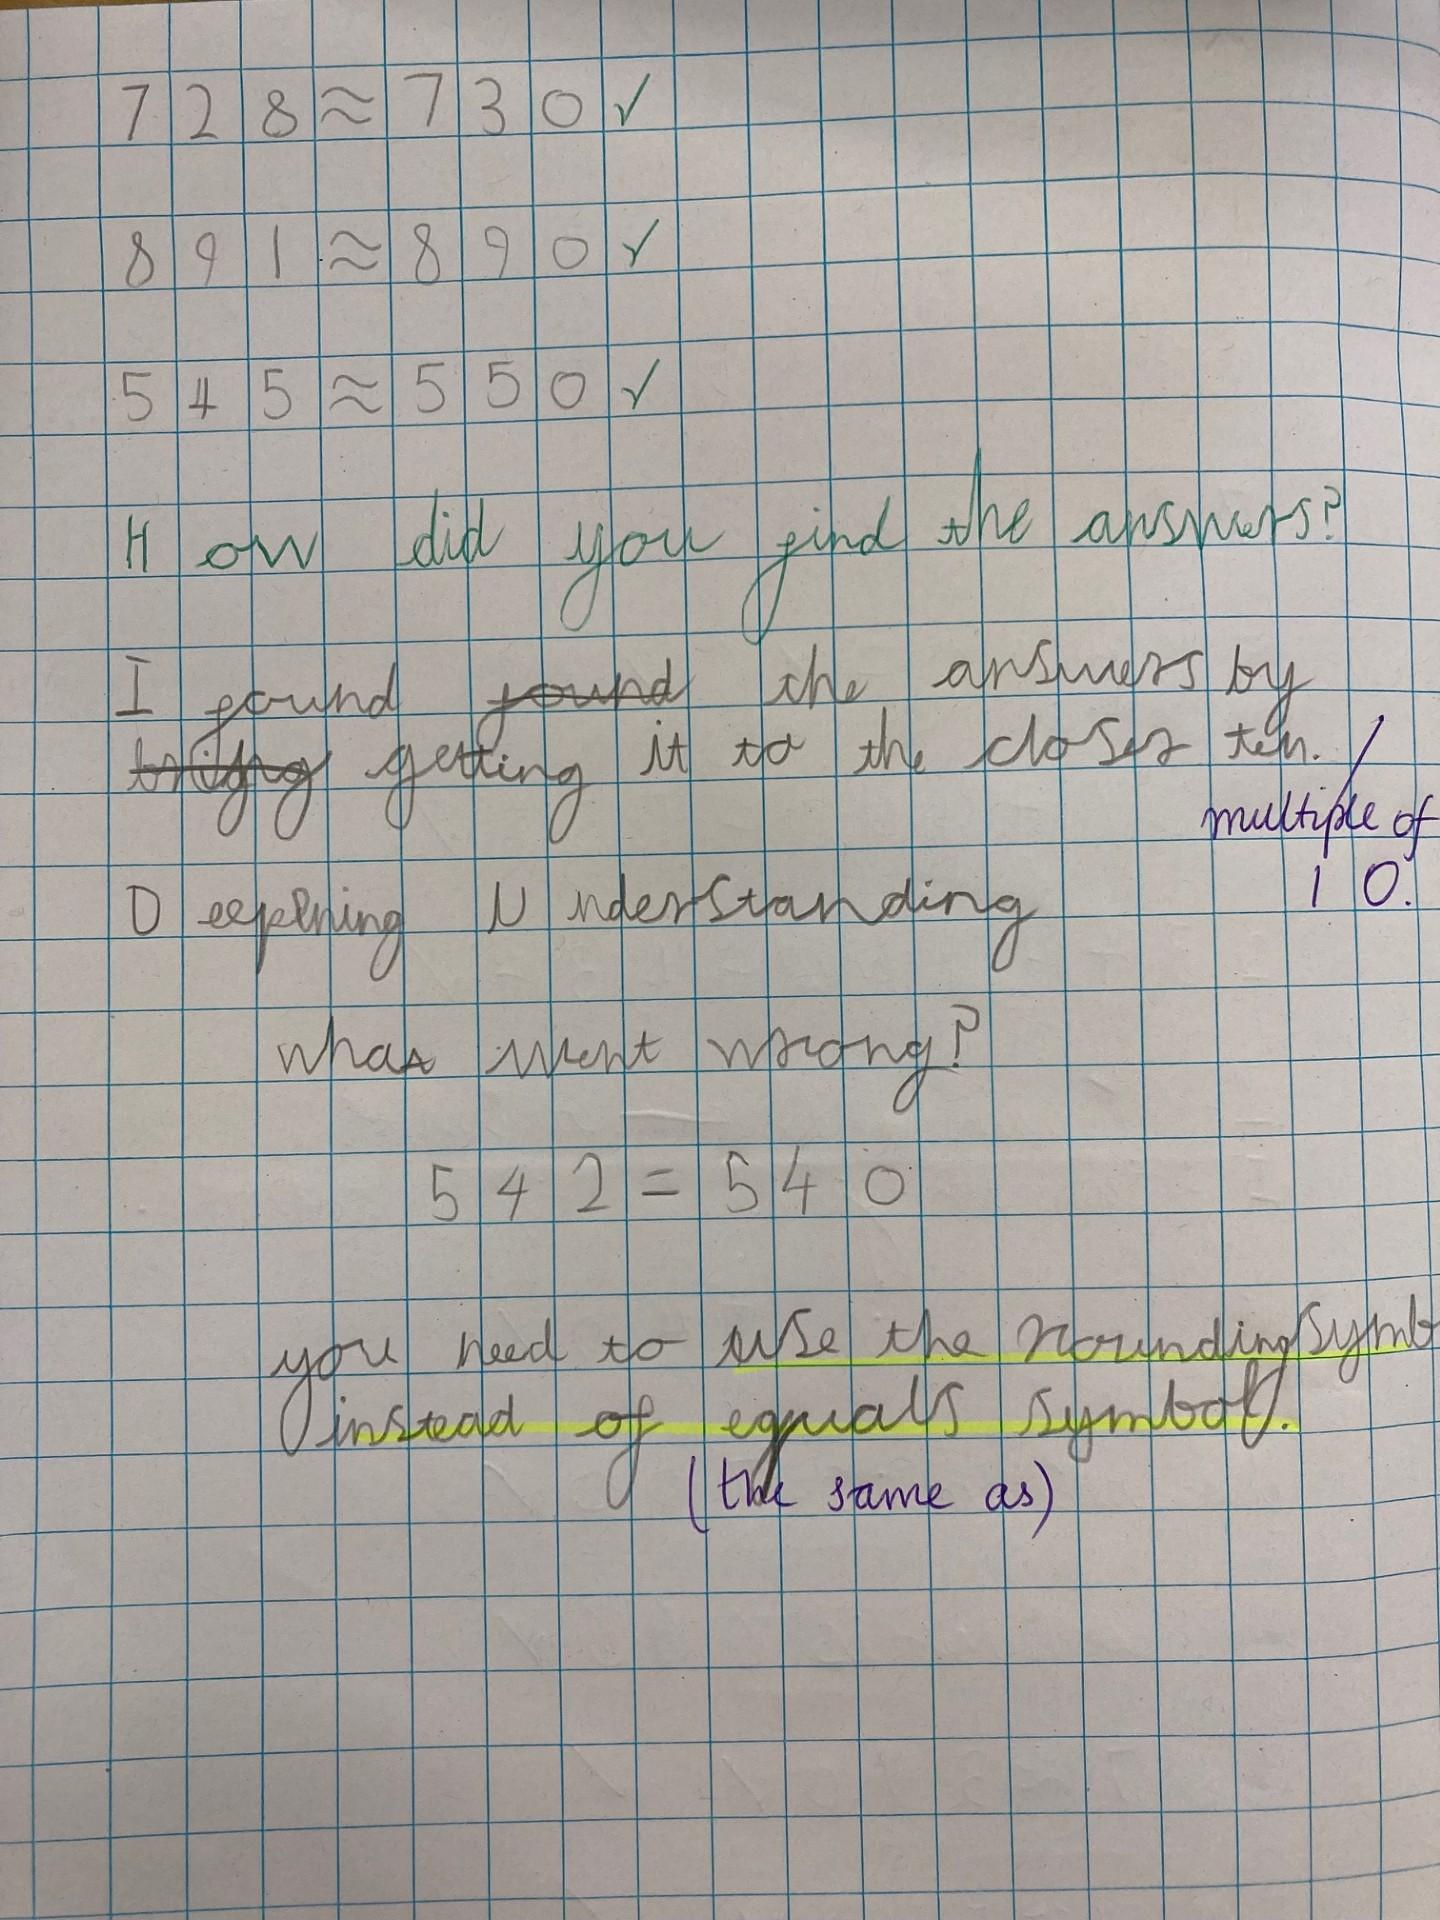 728≈730✓
891≈890✓
545≈550✓
How did you find the answers?
I found found the answers by
getting it to the closes ten.
multiple of
10.
Deepening Understanding
what went wrong?
542=540
you need to use the rounding symb
instead of equals symbol.
(the same as)